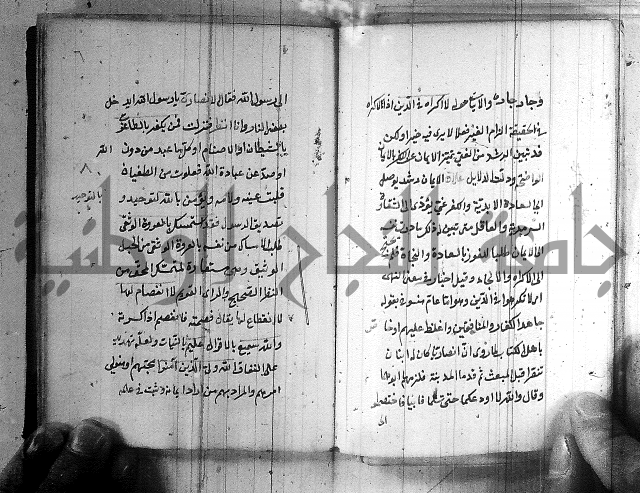 لا اكراه في الدين اذ الاكراه
في الحقيقة الزام الغير فعلا لا يرى فيه خيرا ولكن
قد تبين الرشد من الغي تميز الايمان عن الكفر بالايات
الواضحة ودلت الدلائل الايمان رشد يوصل
الى السعادة الابدية والكفر غي يؤدي الى الشقاوة
السرمدية والعاقل متى تبين له ذلك بادرت نفسه
الى الايمان طلبا للفوز بالسعادة والنجاة
الى الاكراه والالجاء وقيل اخبار في معنى النهي
اي لا تكرهوا في الدين وهو اما عام منسوخ بقوله
جاهد الكفار والمنافقين واغلظ عليهم او خاص
باهل الكتاب روي ان انصاريا كان له ابنان
تنصرا قبل المبعث ثم قدما المدينة فلزمهما ابوهما
وقال والله لا ادعكما حتى تسلما فابيا فاختصموا
الى
الى رسول الله فقال الانصاري يا رسول الله ايدخل
بعضي النار وانا انظر فنزلت فمن يكفر بالطاغوت
بالشيطان او الاصنام او كل ما عبد من دون الله
او صد عن عبادة الله فعلوت من الطغيان
قلبت عينه ولامه ويؤمن بالله بالتوحيد و
تصديق الرسول فقد استمسك بالعروة الوثقى
طلب الامساك من نفسه بالعروة الوثقى من الحبل
الوثيق وهي مستعارة لمتمسك المحق من
النظر الصحيح والراى القويم لا انفصام لها
لا انقطاع لها يقال فصمته فانفصم اذا كسرته
والله سميع بالاقوال عليم بالنيات ولعله تهديد
على النفاق الله ولي الذين آمنوا محبهم او متولي
امرهم والمراد بهم من اراد ايمانه وثبت في علمه
بالتوحيد
جامعة النجاح الوطنية